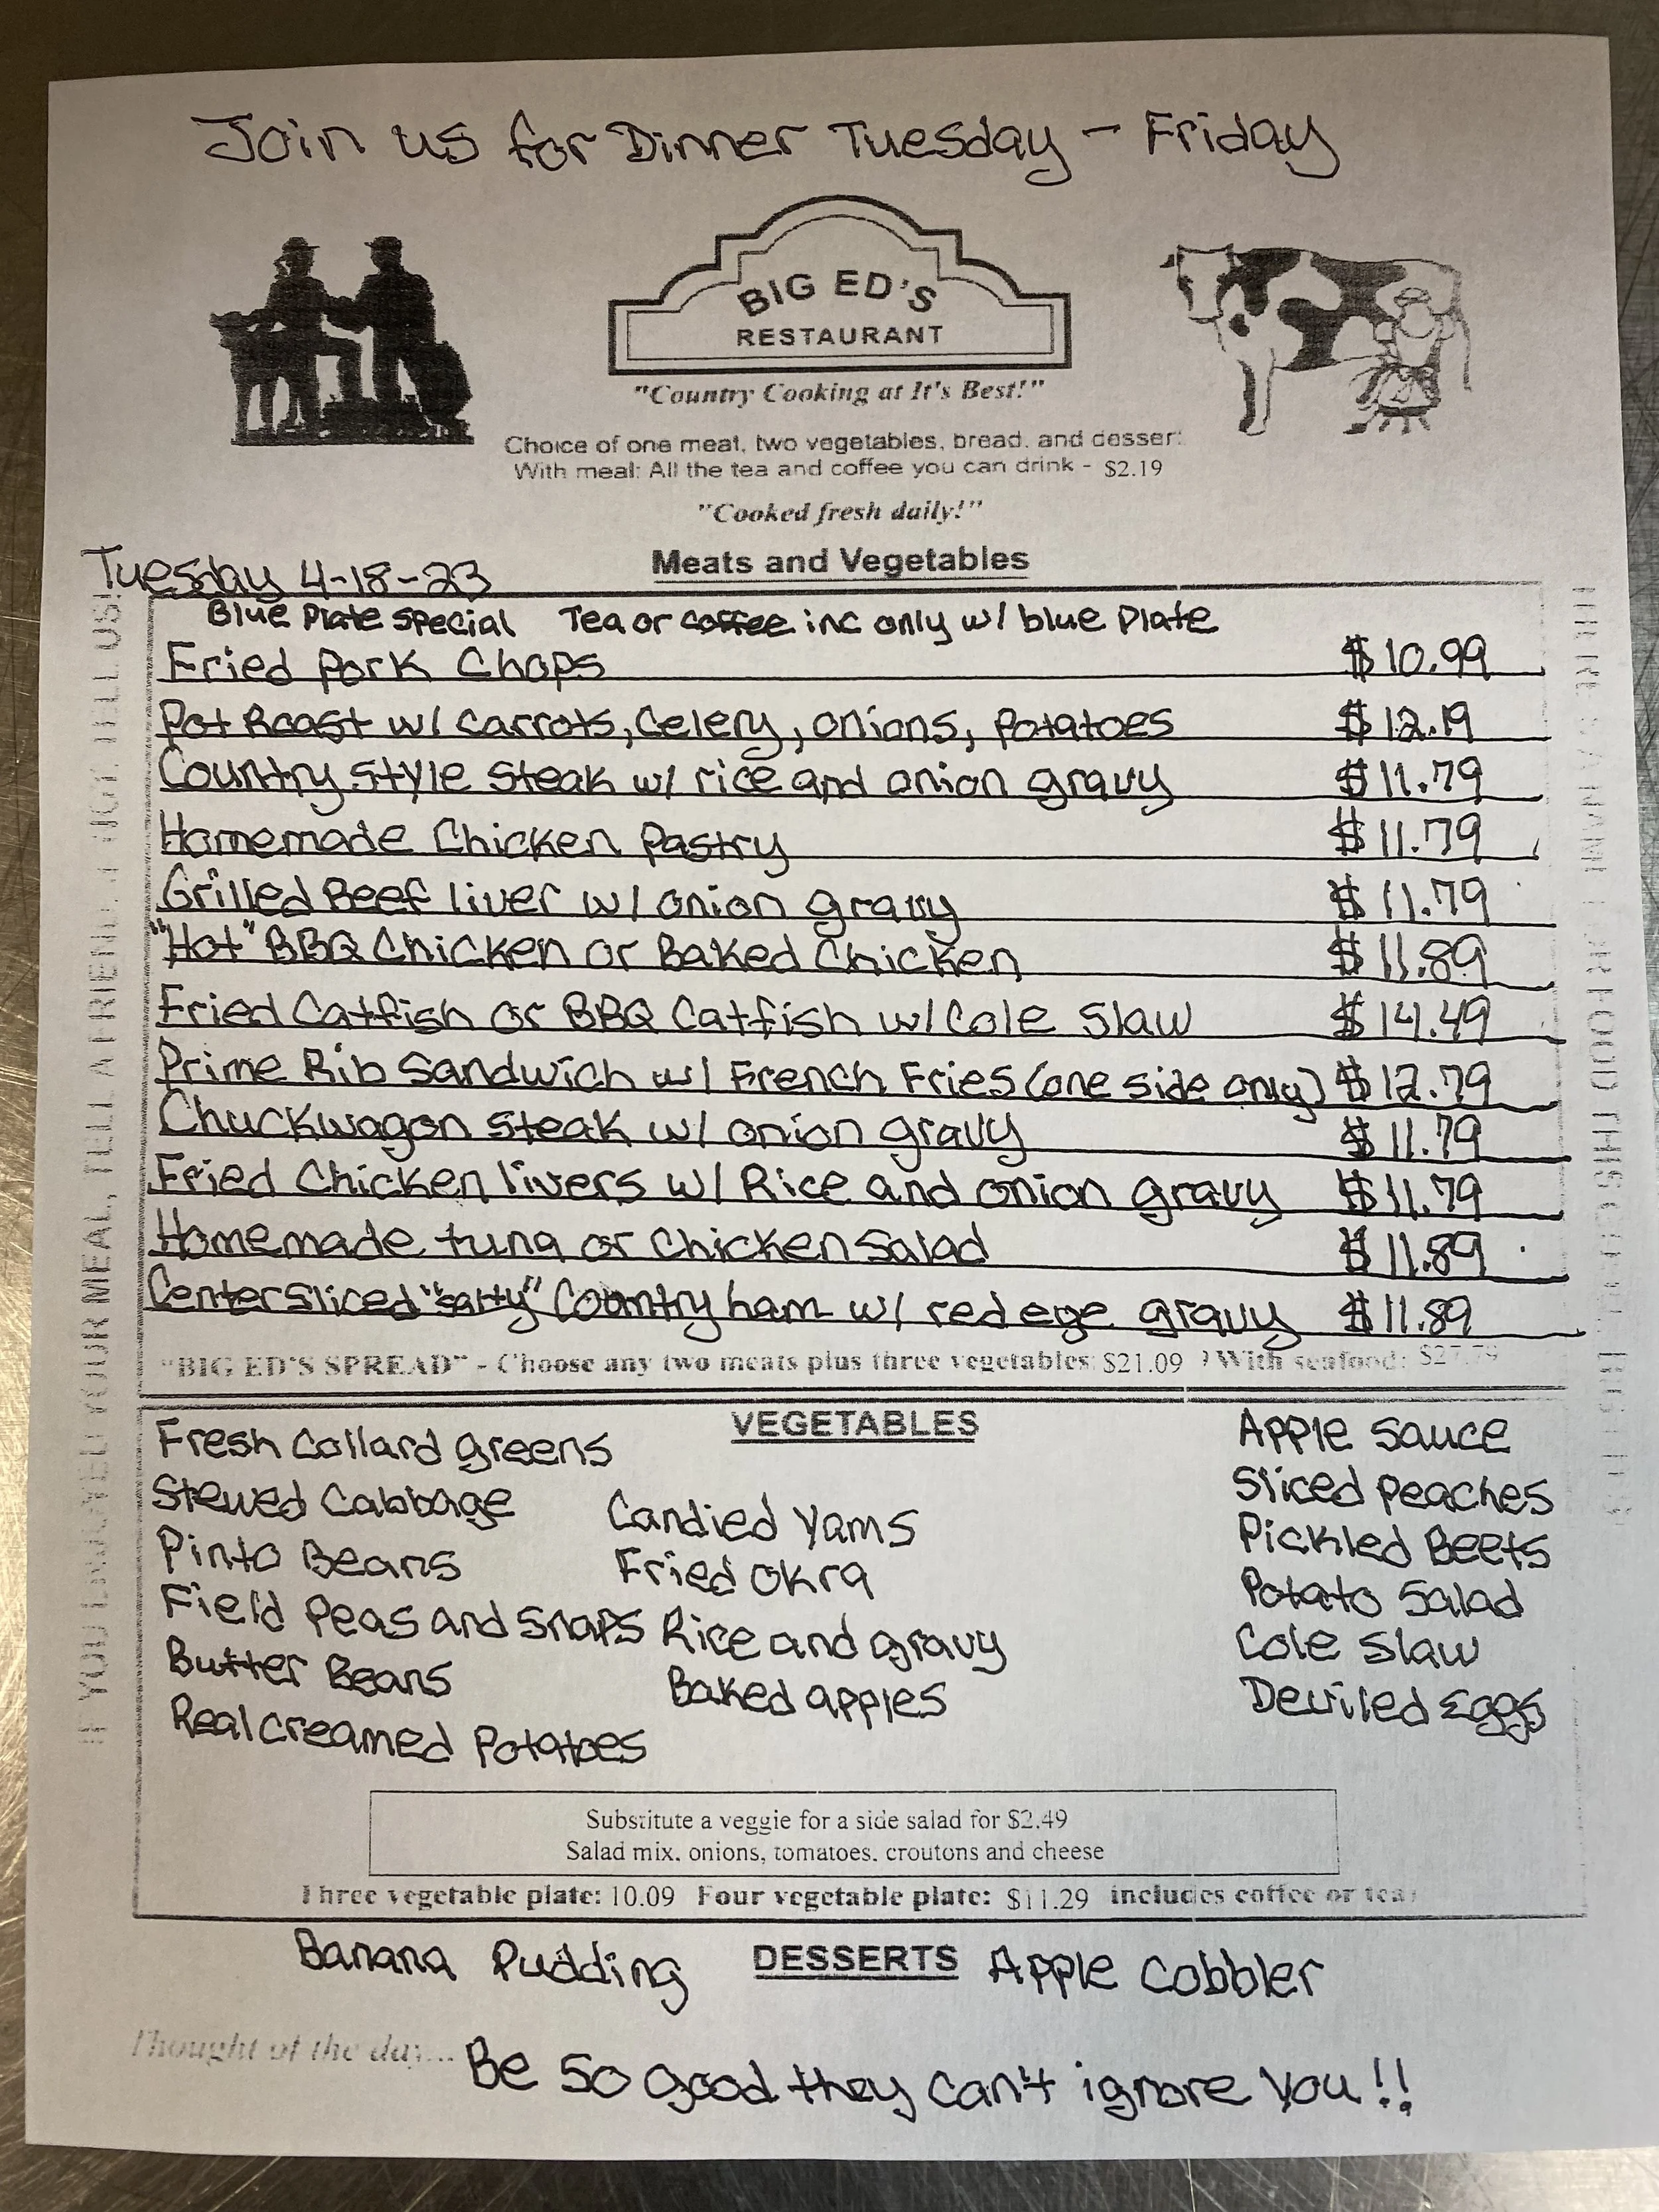 Join us for Dinner Tuesday - Friday
BIG ED'S
RESTAURANT
"Country Cooking at It's Best!"
Choice of one meat, two vegetables, bread, and dessert
With meal: All the tea and coffee you can drink - $2.19
"Cooked fresh daily!"
Tuesday 4-18-23
Meats and Vegetables
Blue Plate Special Tea or coffee inc only w/ blue Plate
Fried Pork Chops $10.99
Pot Roast w/ carrots, celery, onions, potatoes $12.19
Country style steak w/ rice and onion gravy $11.79
Homemade Chicken Pastry $11.79
Grilled Beef liver w/ onion gravy $11.79
"Hot" BBQ Chicken or Baked Chicken $11.89
Fried Catfish or BBQ Catfish w/ Cole Slaw $14.49
Prime Rib Sandwich w/ French Fries (one side only) $12.79
Chuckwagon steak w/ onion gravy $11.79
Fried Chicken livers w/ Rice and onion gravy $11.79
Homemade tuna or Chicken Salad $11.89
Center Sliced "salty" Country ham w/ red eye gravy $11.89
"BIG ED'S SPREAD" - Choose any two meats plus three vegetables: $21.09 With seafood: $27.79
IF YOU ENJOYED YOUR MEAL, TELL A FRIEND, IF NOT, TELL US!
VEGETABLES
Fresh Collard greens
Stewed Cabbage
Pinto Beans
Field Peas and Snaps
Butter Beans
Real creamed Potatoes
Candied Yams
Fried Okra
Rice and gravy
Baked apples
Apple Sauce
Sliced Peaches
Pickled Beets
Potato Salad
Cole Slaw
Deviled Eggs
Substitute a veggie for a side salad for $2.49
Salad mix, onions, tomatoes, croutons and cheese
Three vegetable plate: 10.09 Four vegetable plate: $11.29 includes coffee or tea
DESSERTS
Banana Pudding Apple Cobbler
Thought of the day... Be so good they can't ignore you!!